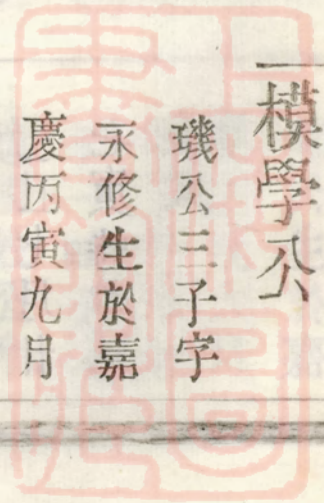 一模學公
璣公三子字
永修生於嘉
慶丙寅九月